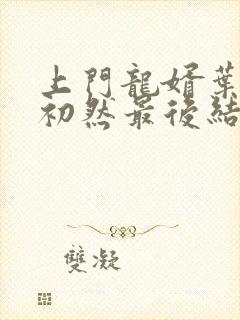 上門龍婿葉
初然最後結
雙凝